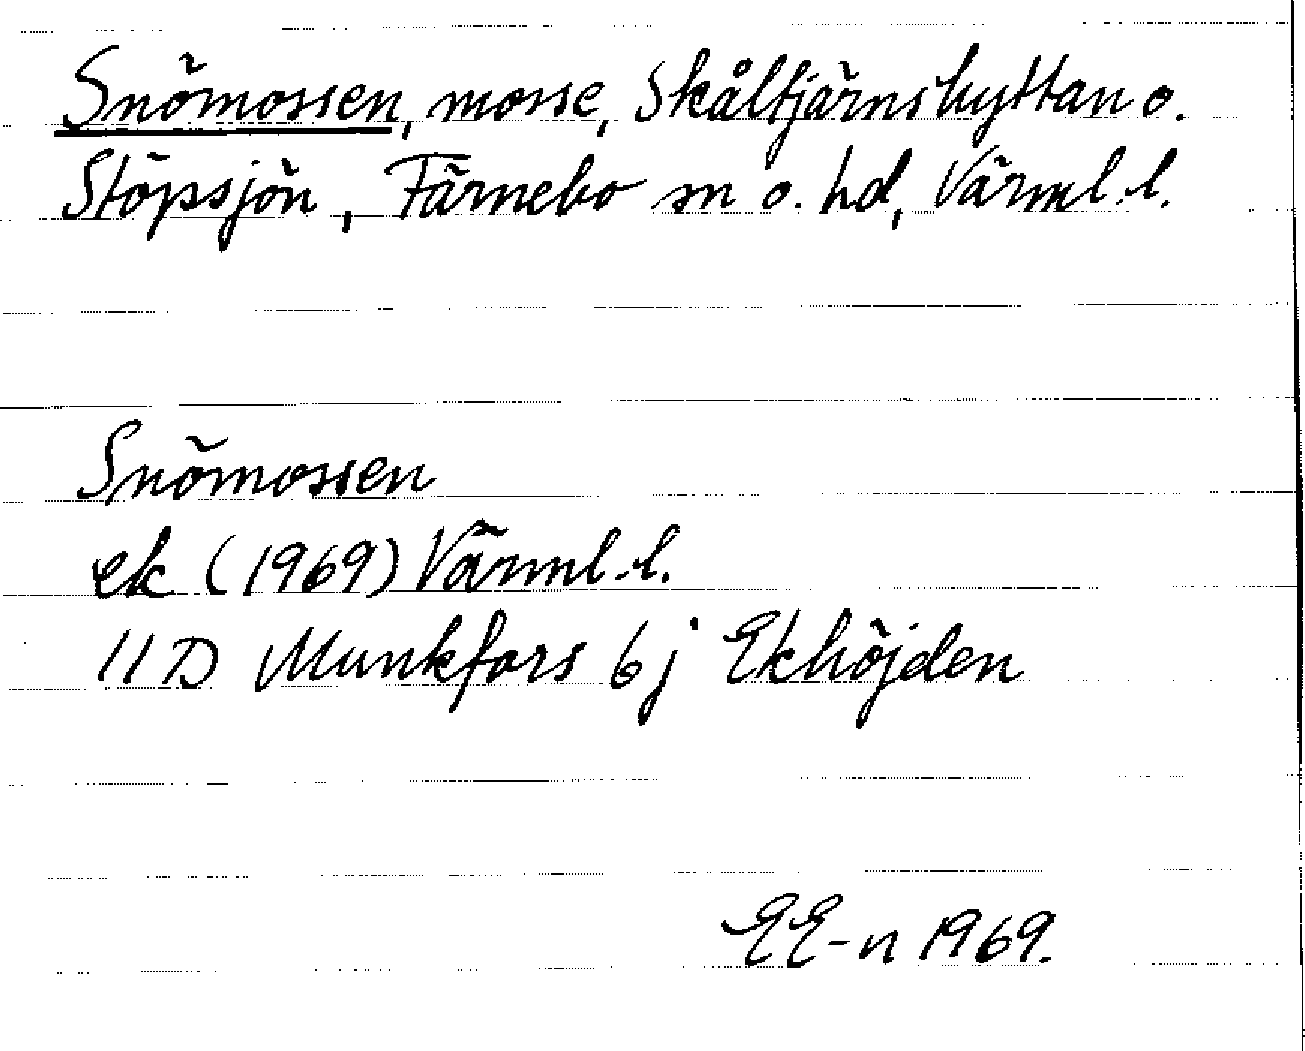 Snömossen, mosse, Skåltjärnshyttan o.
Stöpsjön, Färnebo sn o. hd, Värml. l.
Snömossen
ek (1969) Värml. l.
11 D Munkfors 6 j Ekhöjden
EE-n 1969.